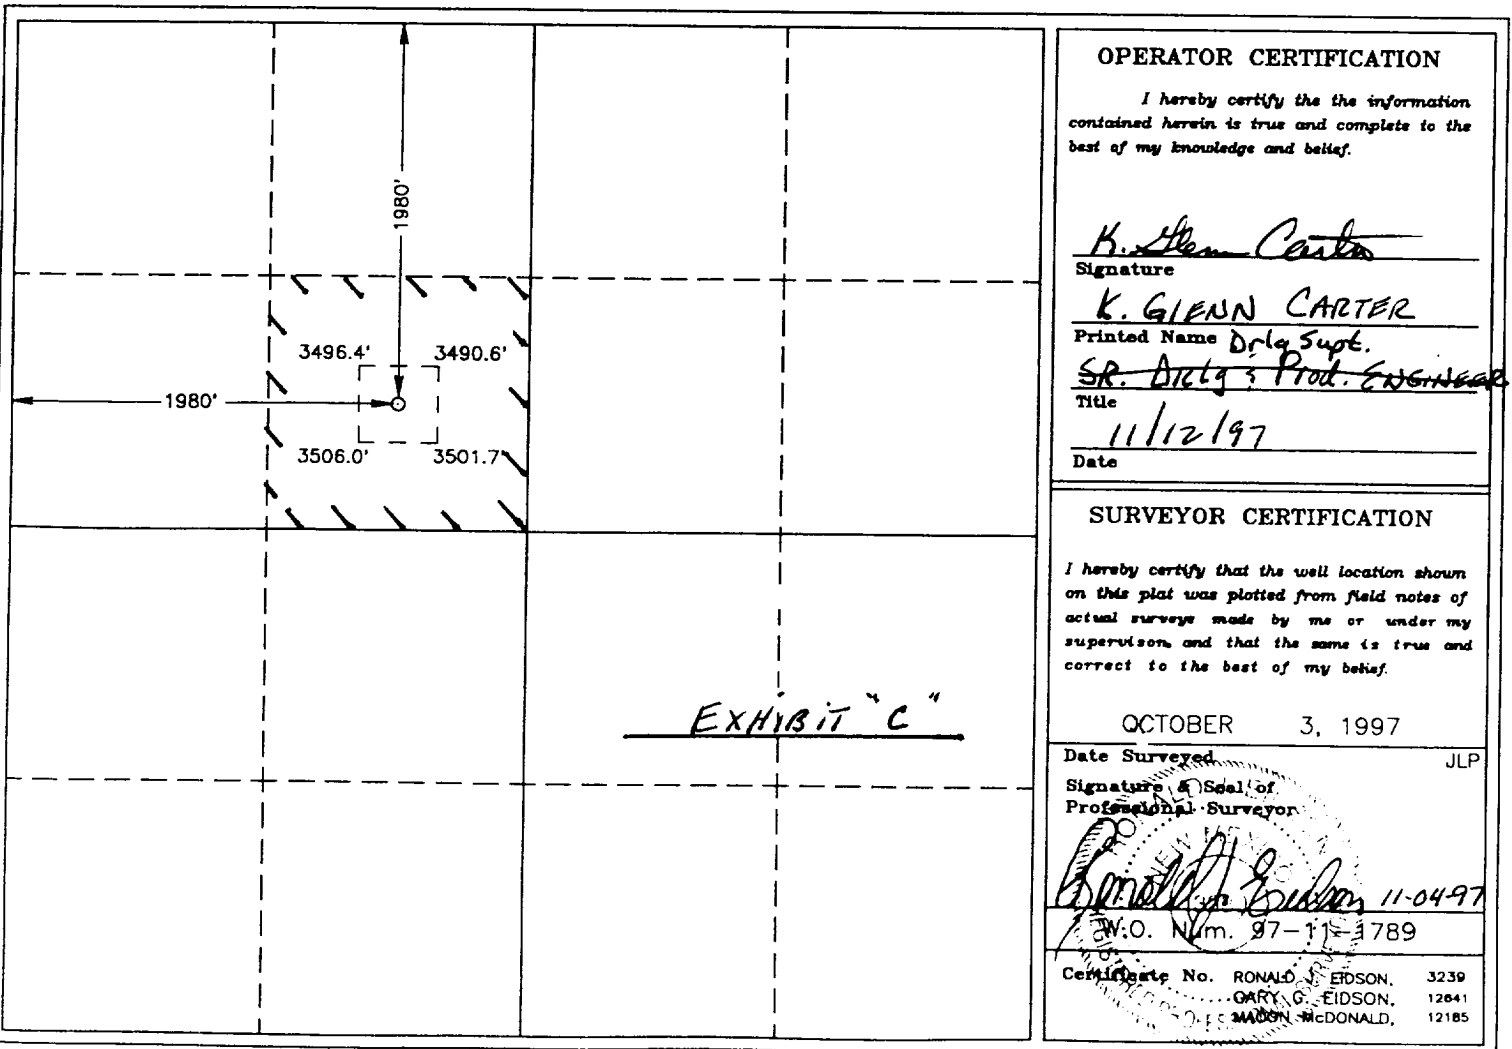 1980'
1980'
3496.4' 3490.6'
3506.0' 3501.7'
EXHIBIT "C"
OPERATOR CERTIFICATION
I hereby certify the the information
contained herein is true and complete to the
best of my knowledge and belief.
K. Glenn Carter
Signature
K. GLENN CARTER
Printed Name Drlg Supt.
SR. Drlg & Prod. ENGINEER
Title
11/12/97
Date
SURVEYOR CERTIFICATION
I hereby certify that the well location shown
on this plat was plotted from field notes of
actual surveys made by me or under my
supervison, and that the same is true and
correct to the best of my belief.
OCTOBER 3, 1997
Date Surveyed JLP
Signature & Seal of
Professional Surveyor
NEW MEXICO
Ronald J. Eidson 11-04-97
W.O. Num. 97-11-1789
Certificate No. RONALD J. EIDSON, 3239
GARY G. EIDSON, 12641
MACON McDONALD, 12185